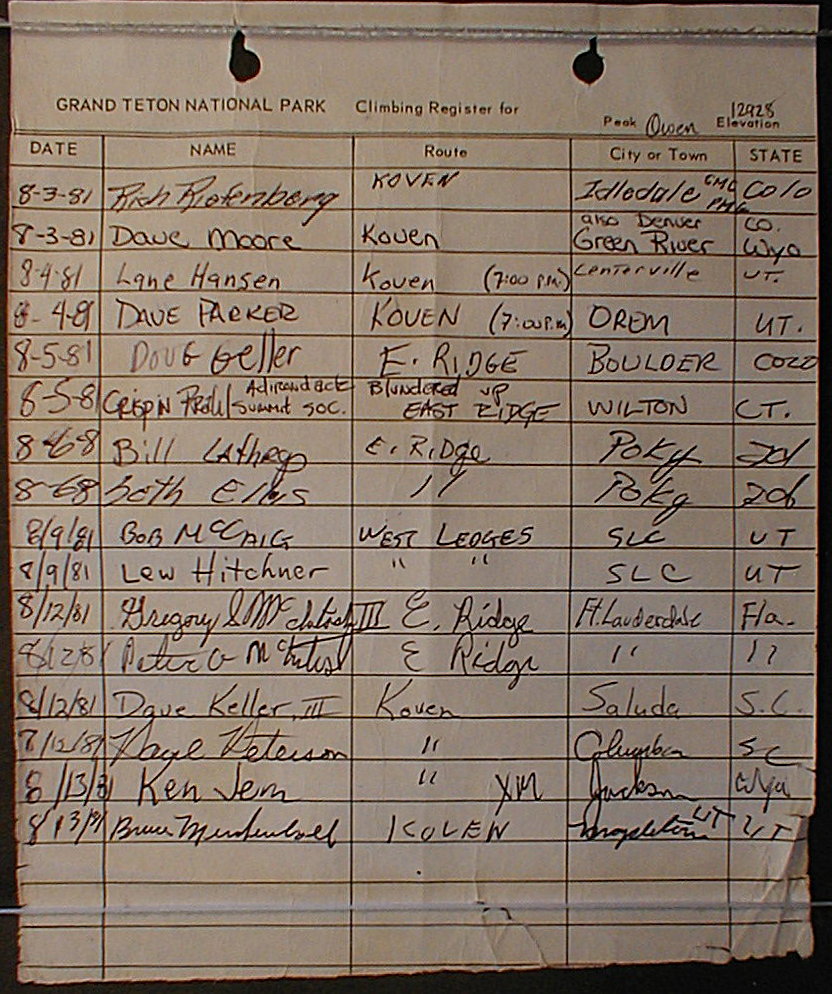 GRAND TETON NATIONAL PARK Climbing Register for Peak Owen Elevation 12928
DATE NAME Route City or Town STATE
8-3-81 Rich Riefenberg KOVEN Idledale CMC PMC Colo
also Denver CO.
8-3-81 Dave Moore Koven Green River Wyo
8-4-81 Lane Hansen Koven (7:00 P.M.) Centerville UT.
8-4-81 DAVE PARKER KOVEN (7:00 P.M) OREM UT.
8-5-81 DOUG Geller E. RIDGE BOULDER COLO
8-5-81 CRISPIN Adirondack Summit SOC. Blundered up EAST RIDGE WILTON CT.
8-6-8 Bill LAthrop E. RiDge Poky Id
8-68 Ellis " Poky Id
8/9/81 BOB McCAIG WEST LEDGES SLC UT
8/9/81 Lew Hitchner " " SLC UT
8/12/81 Gregory S McIntosh III E. Ridge Ft. Lauderdale Fla.
8/12/81 Peter G McIntosh E Ridge " "
8/12/81 Dave Keller, III Koven Saluda S.C.
8/12/81 Peterson " Columbia SC
8/13/81 Ken Jern " Jackson Wyo
8/13/81 Bruce KOVEN UT UT